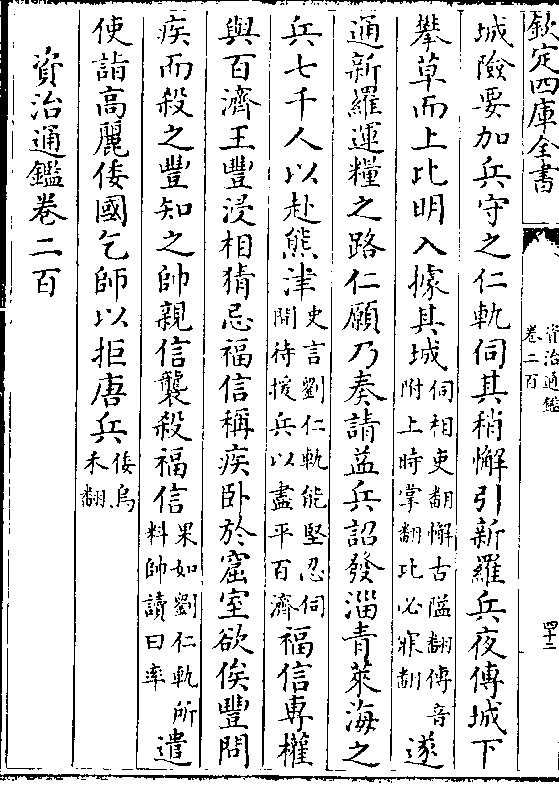 欽定四庫全書
資治通鑑
卷二百
四十三
城險要加兵守之仁軌伺其稍懈引新羅兵夜傅城下
攀草而上比明入據其城伺相吏翻懈古隘翻傅音附上時掌翻比必寐翻遂
通新羅運糧之路仁願乃奏請益兵詔發淄青萊海之
兵七千人以赴熊津史言劉仁軌能堅忍伺間待援兵以盡平百濟福信專權
與百濟王豐浸相猜忌福信稱疾卧於窟室欲俟豐問
疾而殺之豐知之帥親信襲殺福信果如劉仁軌所料帥讀曰率遣
使詣高麗倭國乞師以拒唐兵倭烏禾翻
資治通鑑卷二百